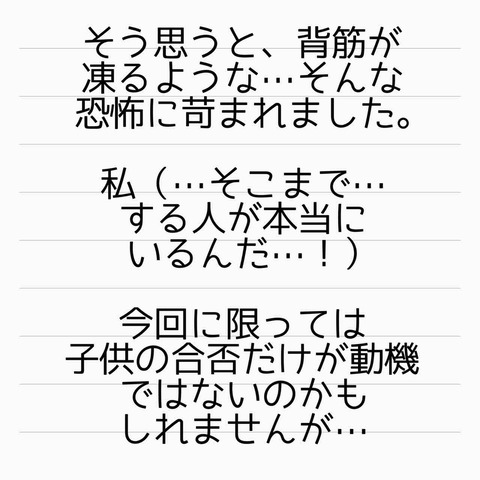 そう思うと、背筋が
凍るような…そんな
恐怖に苛まれました。
私（…そこまで…
する人が本当に
いるんだ…！）
今回に限っては
子供の合否だけが動機
ではないのかも
しれませんが…